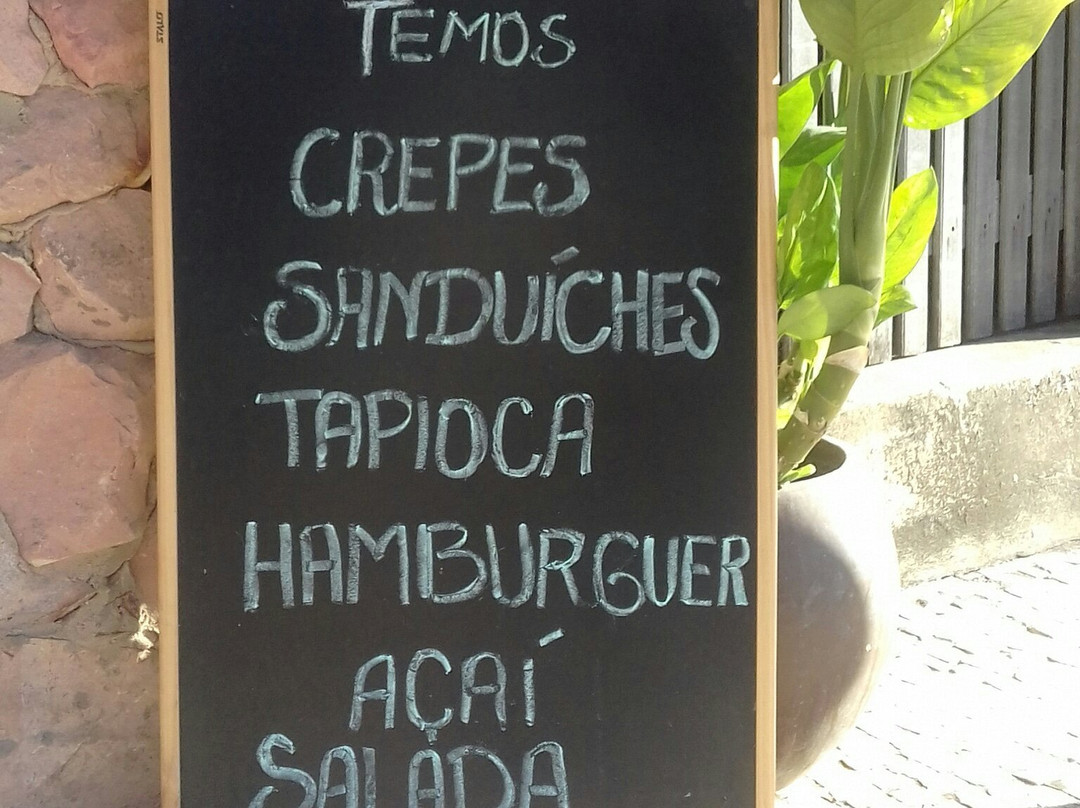 TEMOS
CREPES
SANDUÍCHES
TAPIOCA
HAMBURGUER
AÇAÍ
SALADA